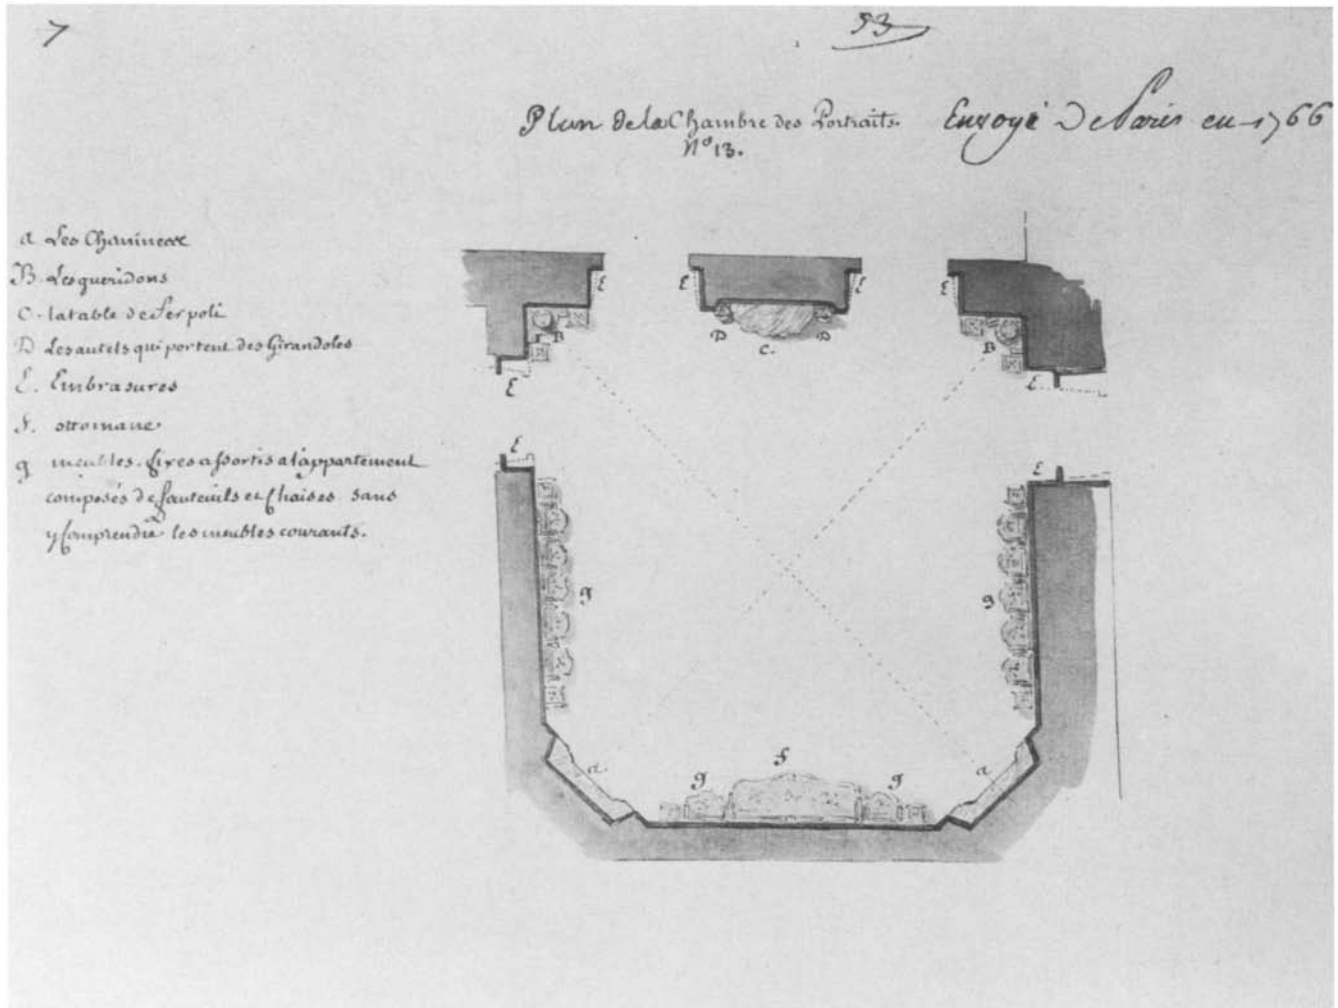 7
53
Plan de la Chambre des Portraits. Envoyé De Paris en 1766
N° 13.
a Les Chamineax
B Les queridons
C. la table de fer poli
D Les autels qui portent des Girandoles
E. Embrasures
f. ottomane
g meubles fixes assortis a l'appartement
composés de fauteuils et Chaises sans
y Comprendre les meubles courants.
E
E
E
E
B
D
C.
D
B
E
E
E
E
g
g
a
g
f
g
a